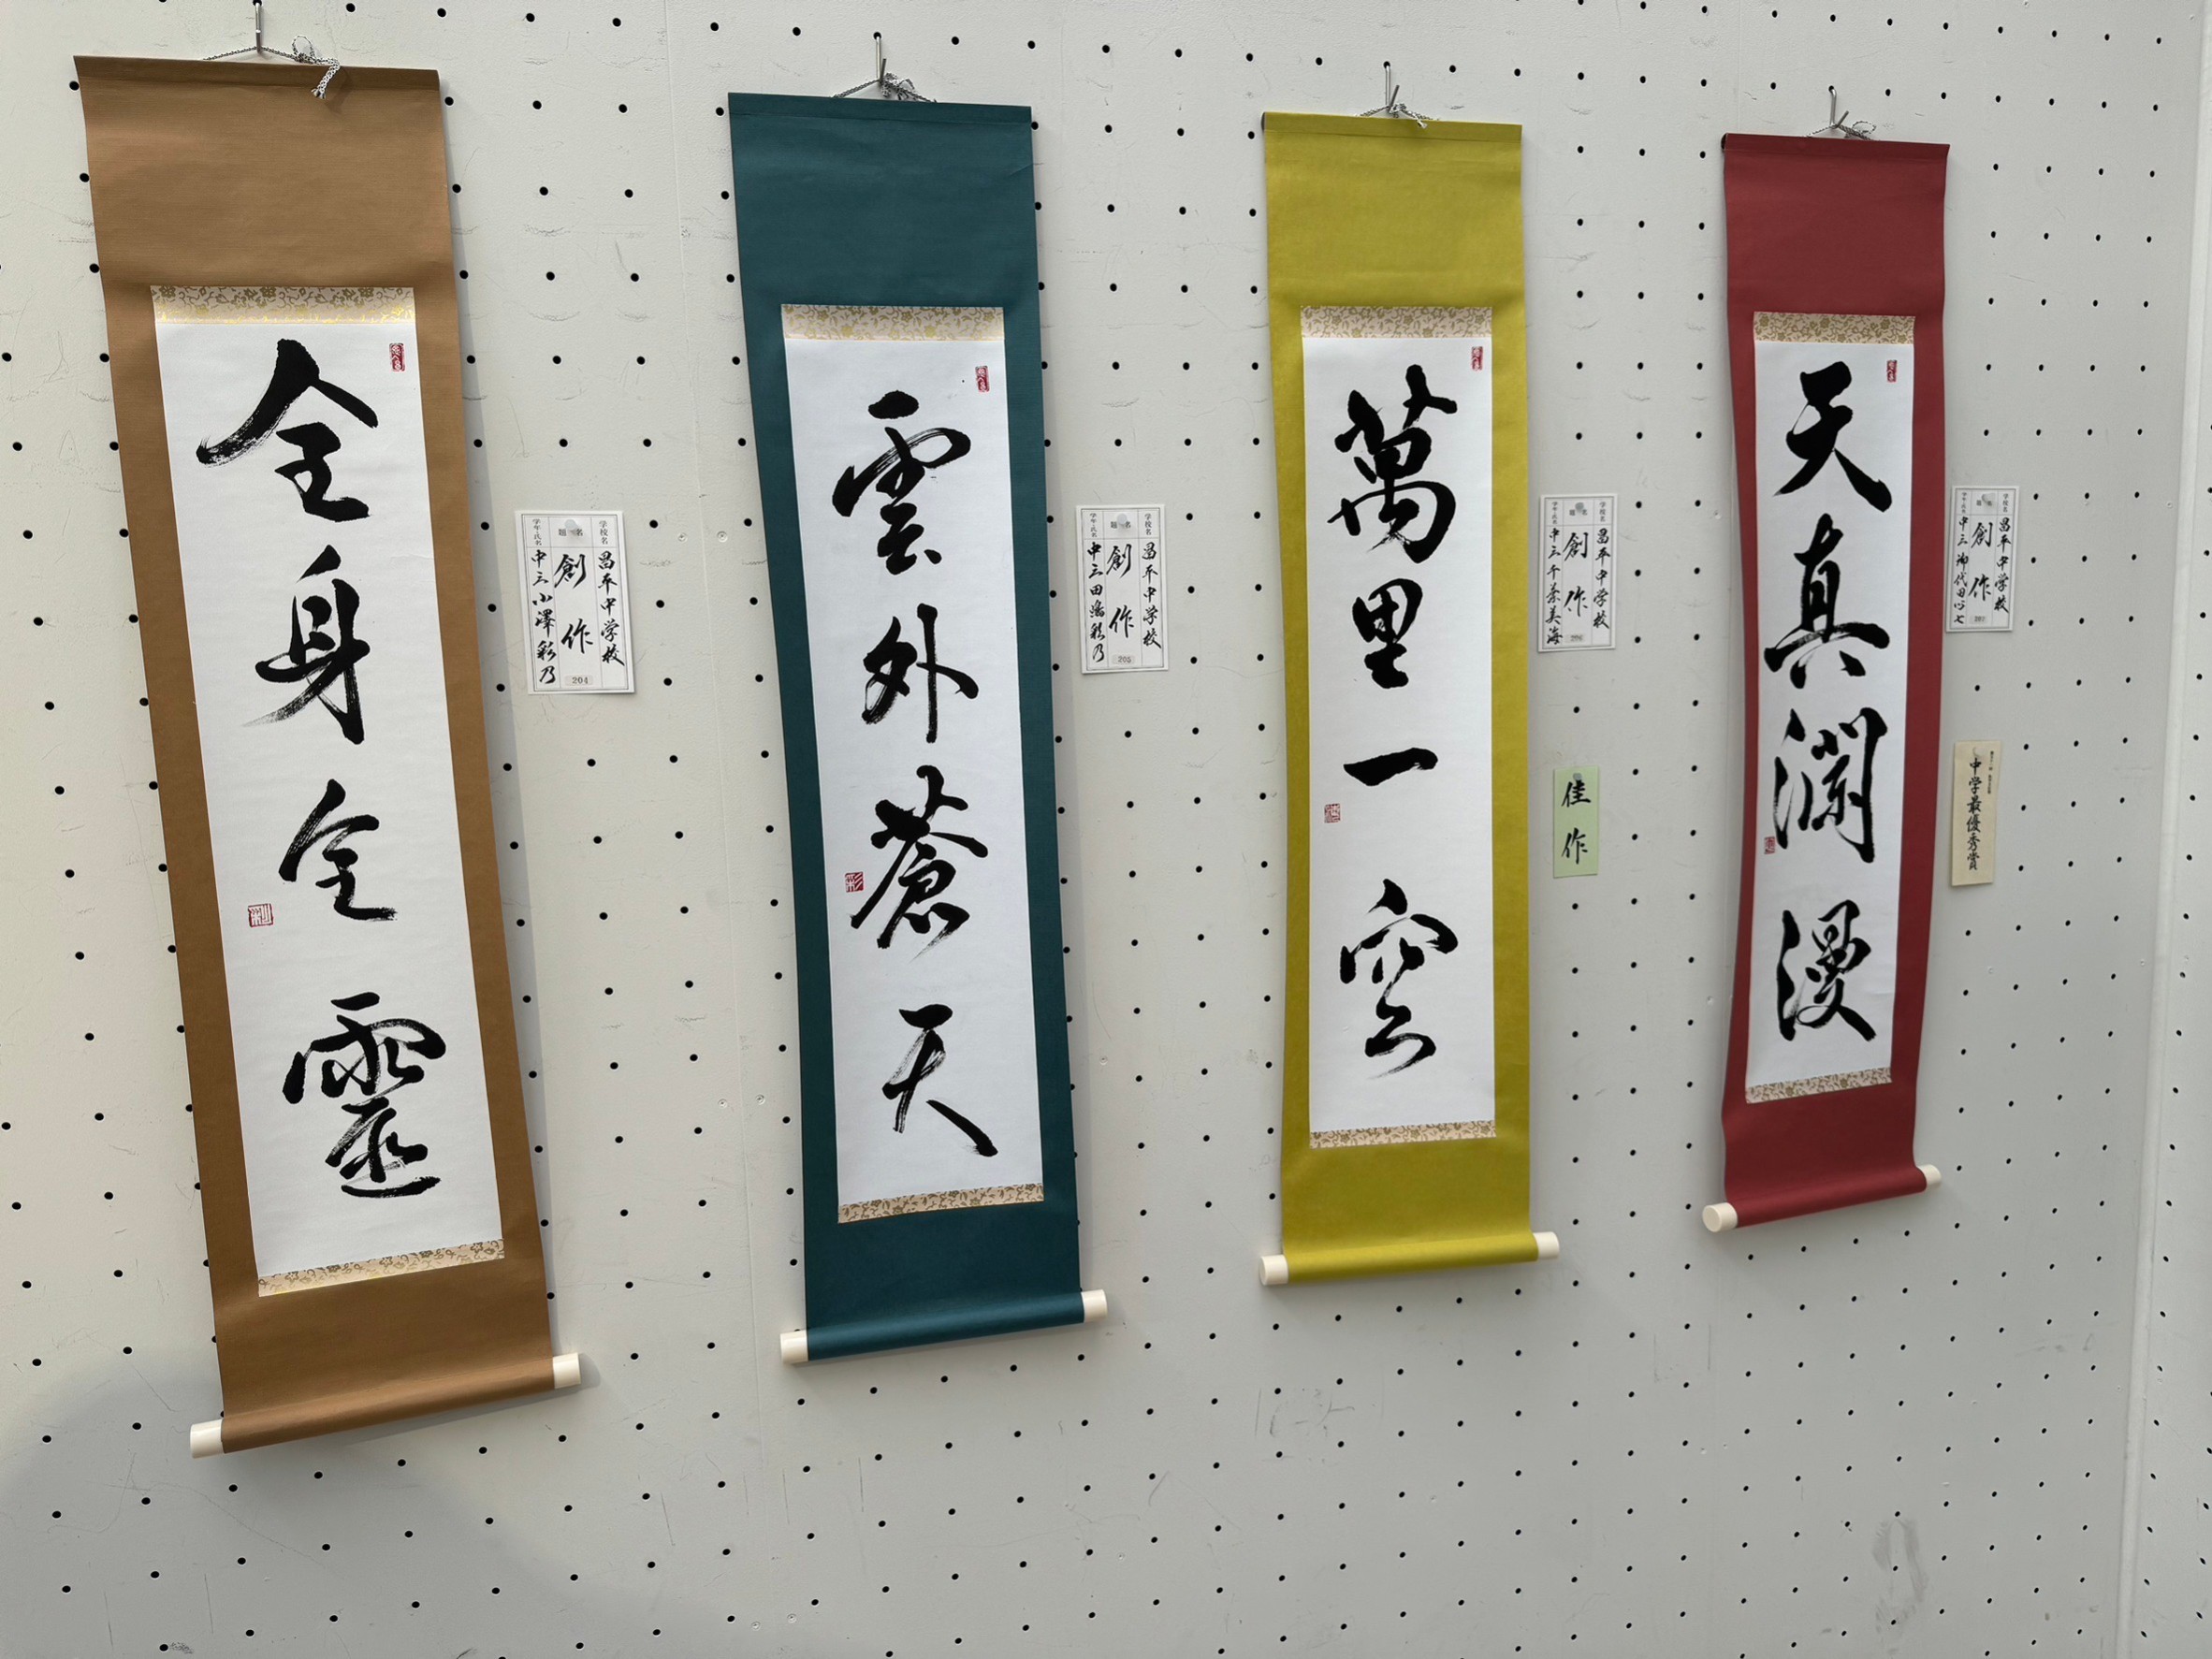 全身全霊
学校名 昌平中学校
題名 創作
学年・氏名 中三 小澤彩乃
204
雲外蒼天
学校名 昌平中学校
題名 創作
学年・氏名 中三 田嶋彩乃
205
萬里一空
学校名 昌平中学校
題名 創作
学年・氏名 中三 千葉美海
佳作
天真瀾漫
学校名 昌平中学校
題名 創作
学年・氏名 中三 御代田心七
中学最優秀賞